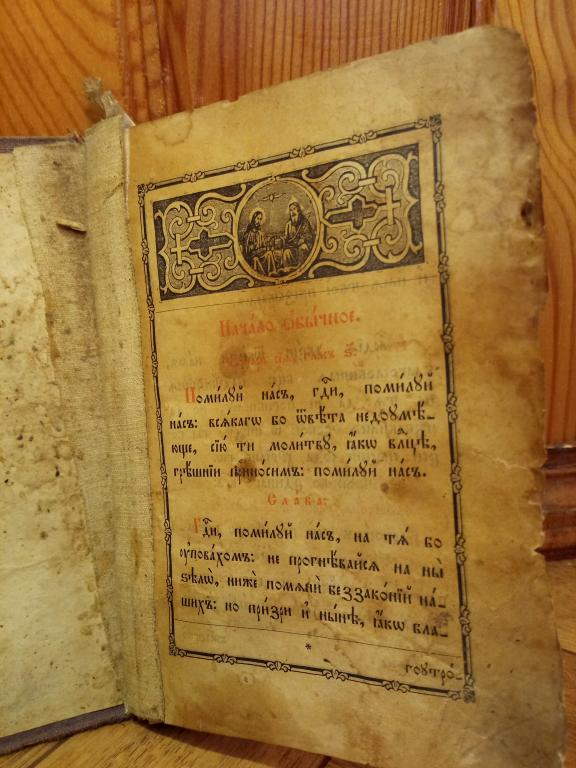 Нача́ло ѻ҆бы́чное.
гла́съ ѕ҃:
Поми́лꙋй на́съ, гдⷭ҇и, поми́лꙋй
на́съ: всѧ́кагѡ бо ѿвѣ́та недоꙋмѣ́-
юще, сїю̀ ти моли́твꙋ, ꙗ҆́кѡ влⷣцѣ,
грѣ́шнїи прино́симъ: поми́лꙋй на́съ.
Сла́ва:
Гдⷭ҇и, поми́лꙋй на́съ, на тѧ́ бо
ᲂу҆пова́хомъ: не прогнѣ́вайсѧ на ны̀
ѕѣлѡ̀, нижѐ помѧнѝ беззако́нїй на́-
шихъ: но при́зри и҆ ны́нѣ, ꙗ҆́кѡ бла-
*
гоꙋтро́-